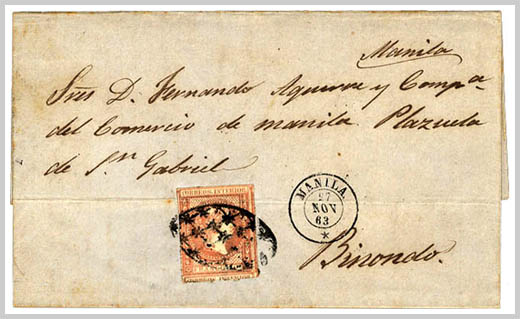 Manila
Sres D. Fernando Aguirre y Compa
del Comercio de manila Plazuela
de Sn Gabriel
CORREOS INTERIOR
FRANCO
MANILA
27
NOV
63
Binondo.